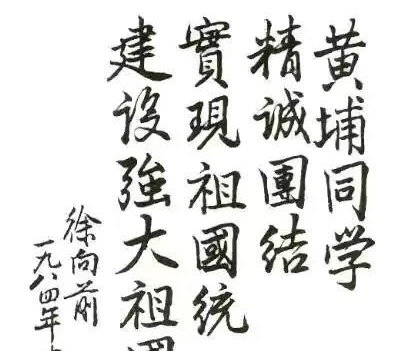 黄埔同学
精誠團结
實現祖國統
建设強大祖國
徐向前
一九八四年